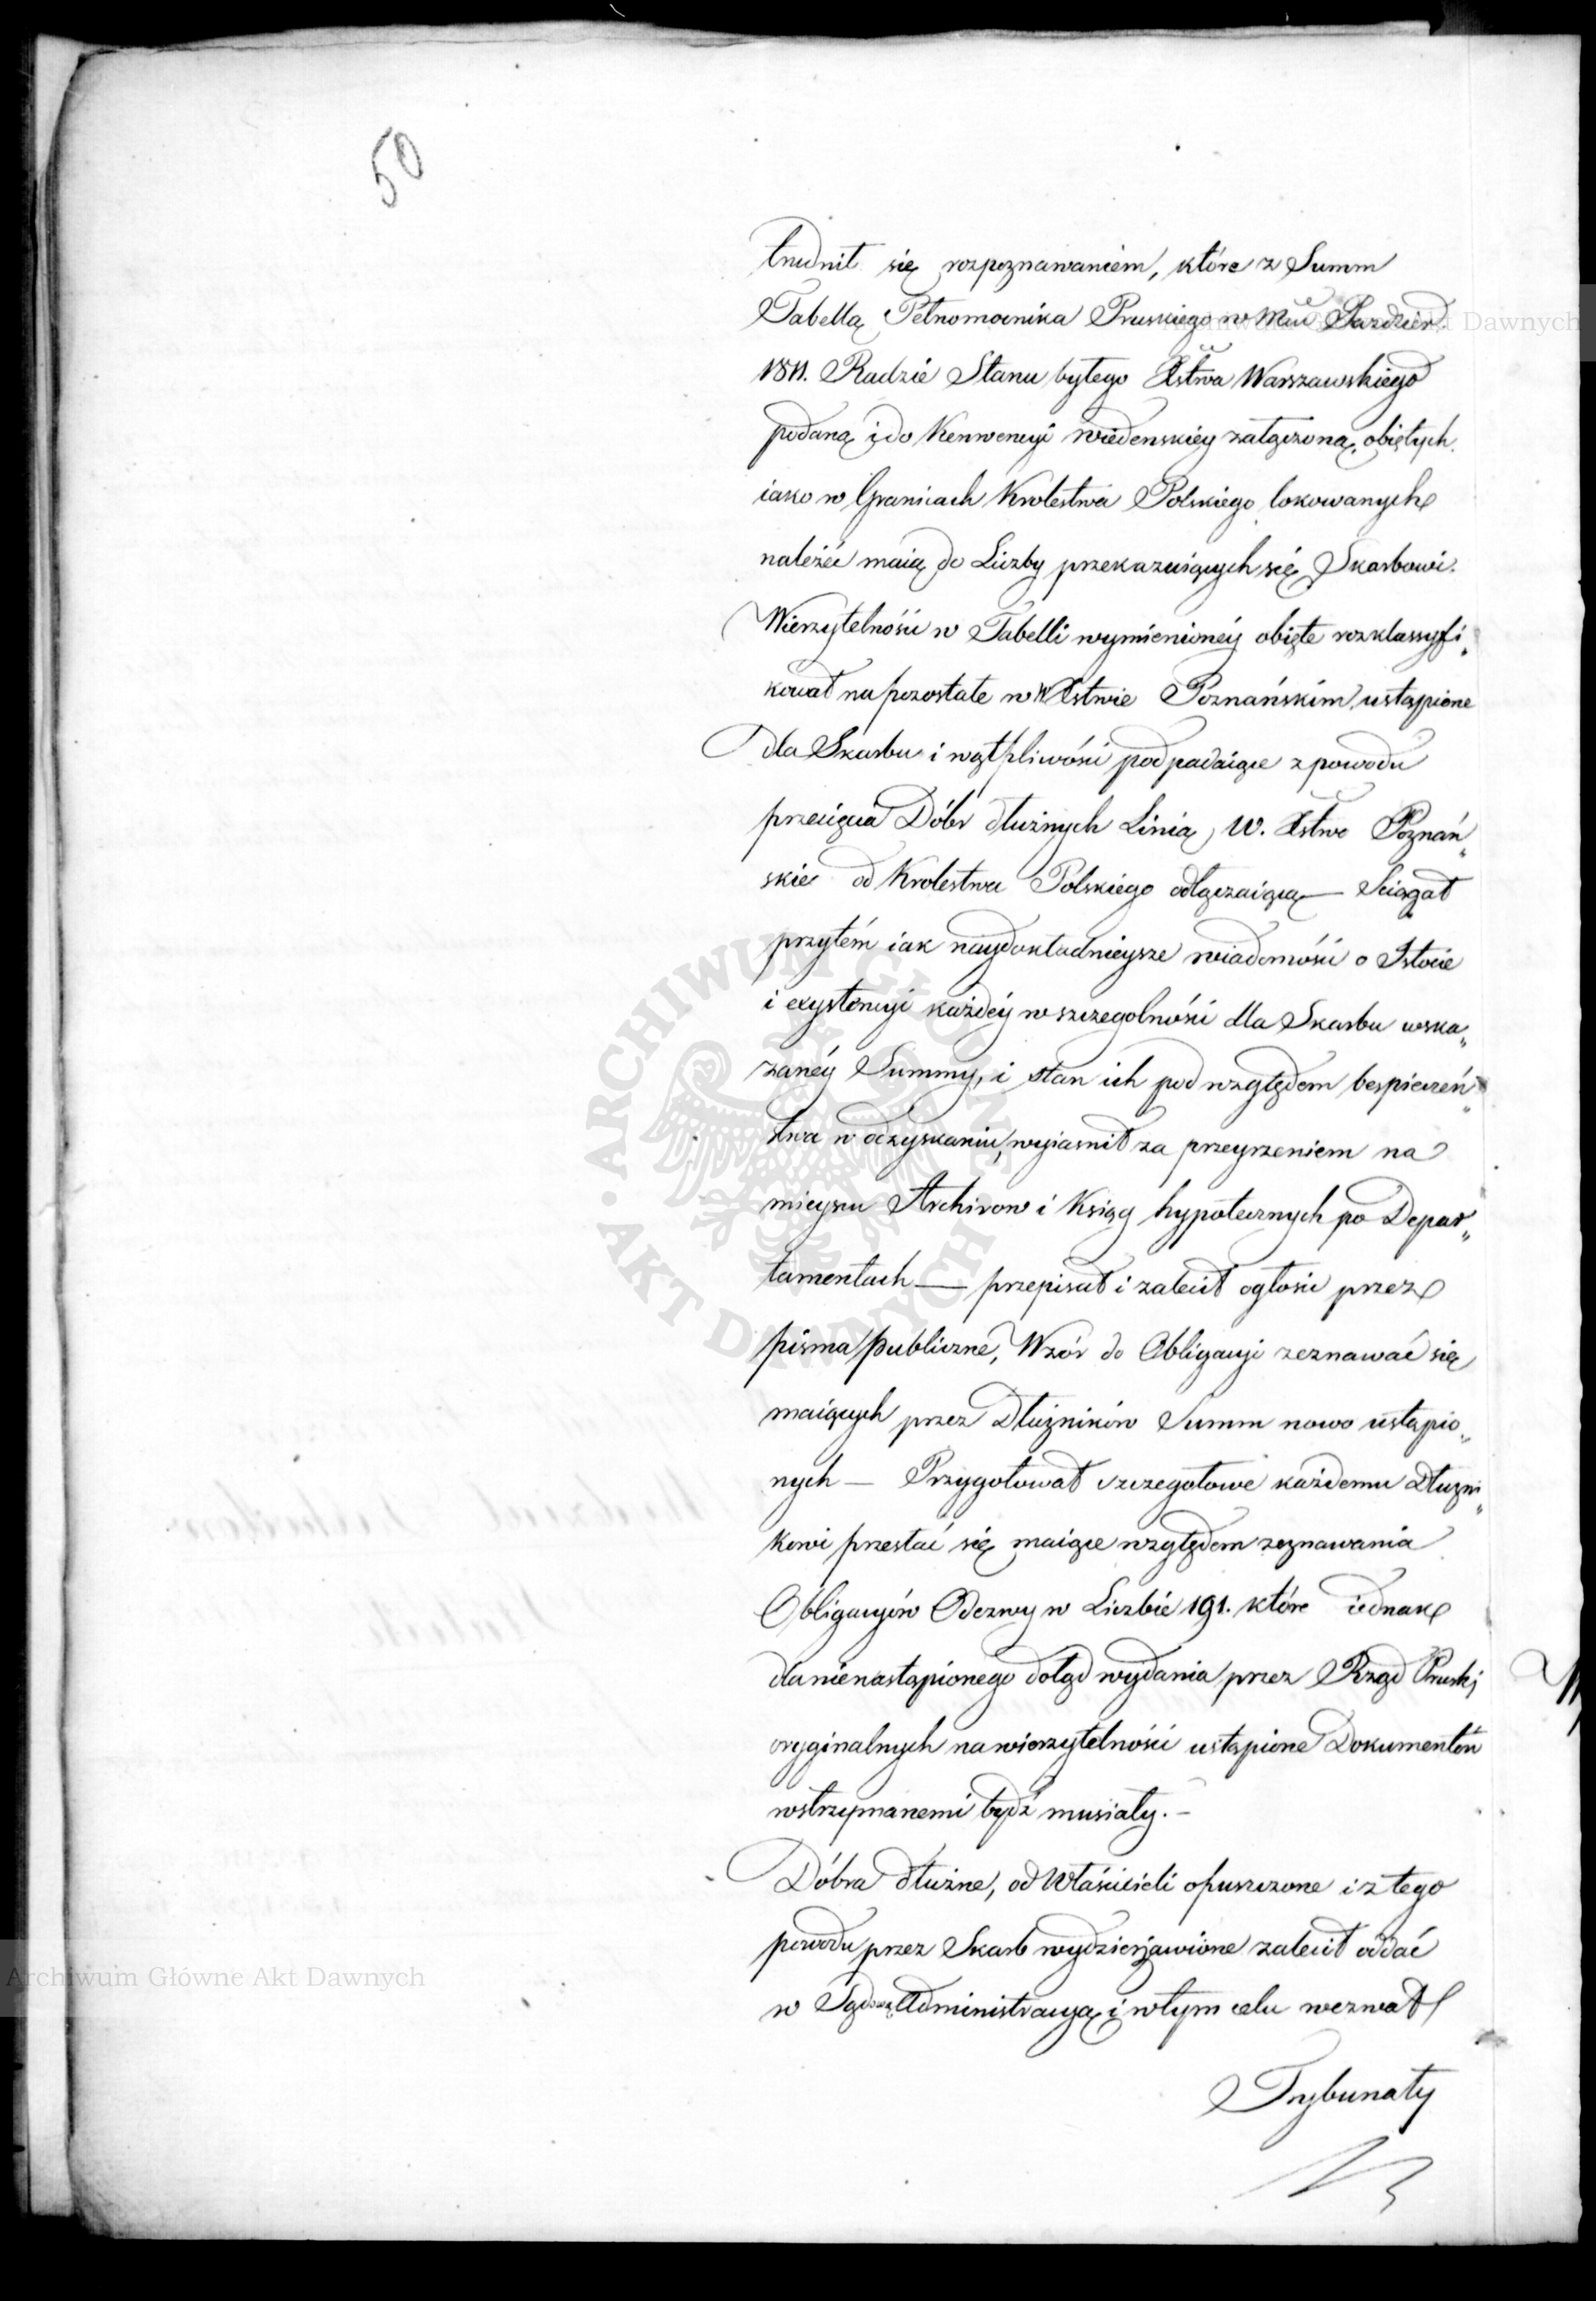 50
trudnił się rozpoznawaniem, które z Summ
Tabellą Pełnomocnika Pruskiego w Mcu Paździer.
1811. Radzie Stanu byłego Xstwa Warszawskiego
podaną i do Konwencyi wiedenskiey załączoną, obiętych
iako w Granicach Krolestwa Polskiego lokowanych
należéć maią do Liczby przekazuiących się Skarbowi.
Wierzytelności w Tabelli wymienionéy obięte rozklassyfi„
kował na pozostałe w W Xstwie Poznańskim, ustąpione
dla Skarbu i wątpliwości podpadaiące z powodu
przecięcia Dóbr dłużnych Linią, W. Xstwo Poznań„
skie od Krolestwa Polskiego odłączaiącą — Sciągał
przytém iak naydokładnieysze wiadomości o Istocie
i exystencyi każdéy w szczegolności dla Skarbu wska„
zanéy Summy, i stan ich pod względem bespieczeń„
stwa w odzyskaniu, wyiasnił za przeyrzeniem na
mieyscu Archivow i Ksiąg hypotecznych po Depar„
tamentach — przepisał i zalecił ogłosić przez
pisma publiczne, Wzór do Obligacyi zeznawać się
maiących przez Dłużników Summ nowo ustąpio„
nych — Przygotował szczegołowe każdemu Dłużni„
kowi przesłać się maiące względem zeznawania
Obligacyów Odezwy w Liczbie 191. które iednak
dla nienastąpionego dotąd wydania przez Rząd Pruski
oryginalnych na wierzytelności ustąpione Dokumentów
wstrzymanemi bydź musiały. —
Dóbra dłużne, od Właścicieli opuszczone i z tego
powodu przez Skarb wydzierzawione zalecił oddać
w Sądową Administracyą i w tym celu wezwał
Trybunały
ARCHIWUM GŁÓWNE AKT DAWNYCH
Archiwum Główne Akt Dawnych